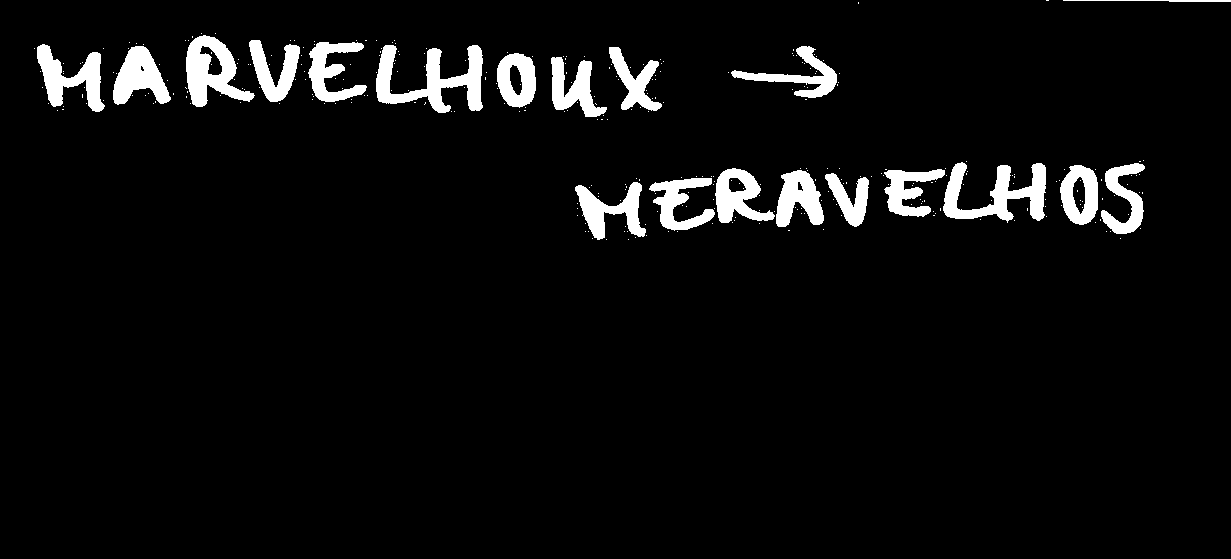 MARVELHOUX →
MERAVELHOS